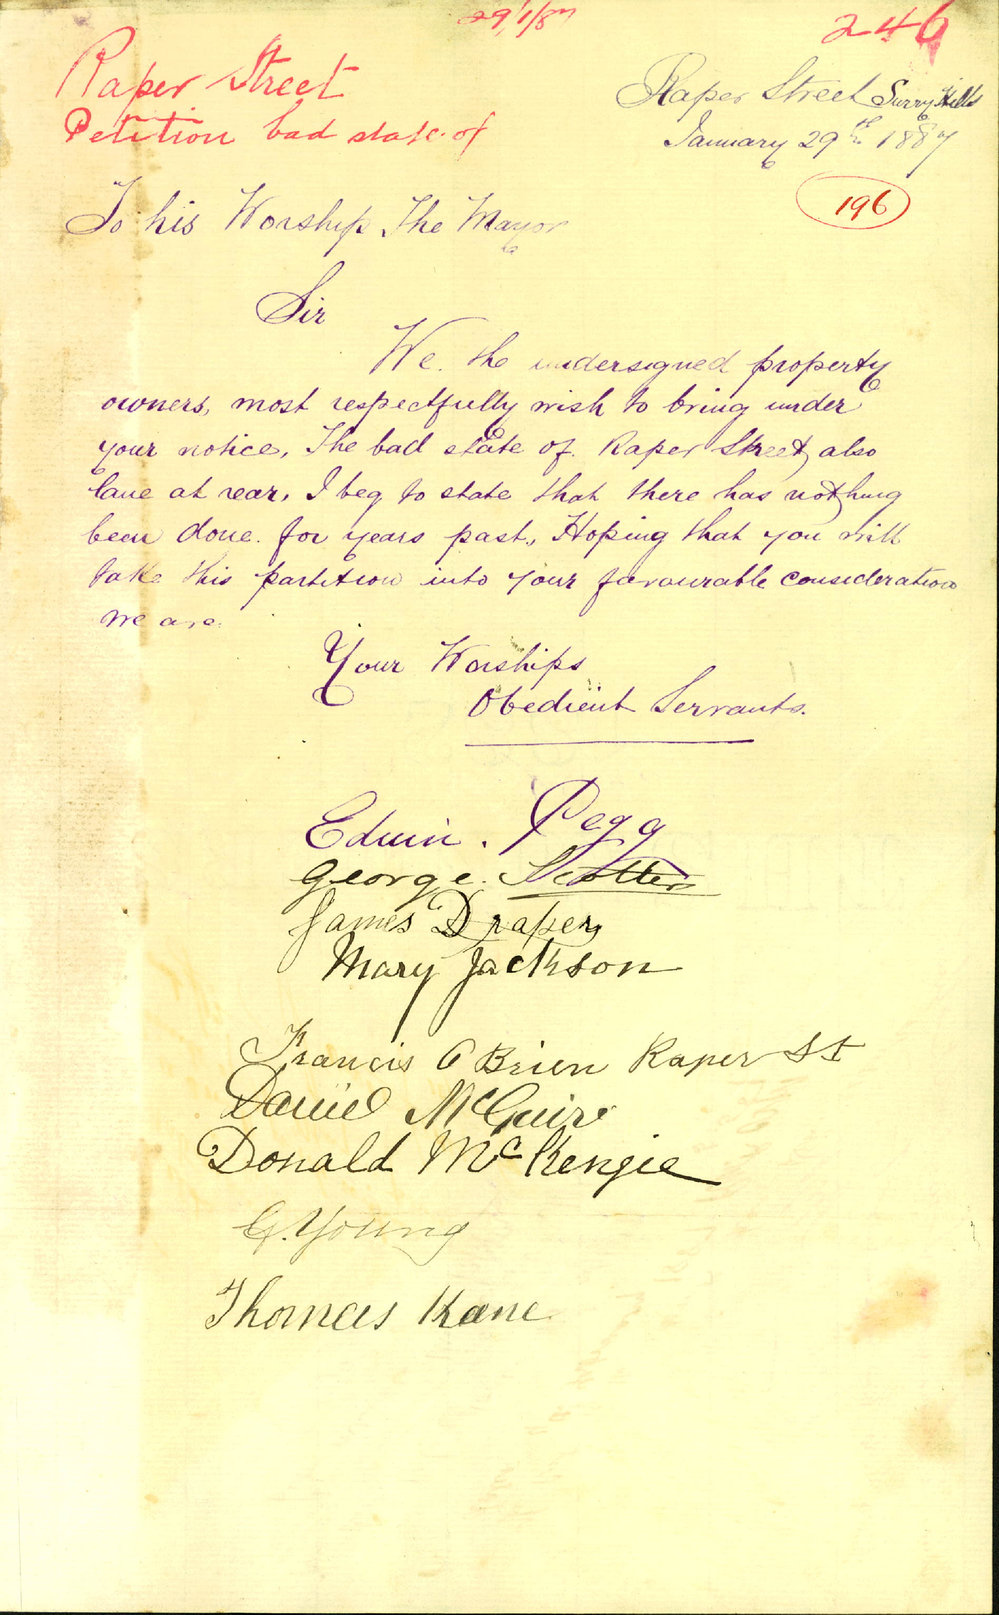 29/1/87
246
Raper Street
Petition bad state of
Raper Street Surry Hills
January 29th 1887
196
To his Worship The Mayor
Sir
We. the undersigned property
owners, most respectfully wish to bring under
your notice, The bad state of Raper Street, also
lane at rear, I beg to state that there has nothing
been done for years past, Hoping that you will
take this partition into your favourable consideration
we are
Your Worships
Obedient Servants.
Edwin. Pegg
George
James Draper
Mary Jackson
Francis O Brien Raper St
Daniel McGuire
Donald McKenzie
G. Young
Thomas Kane